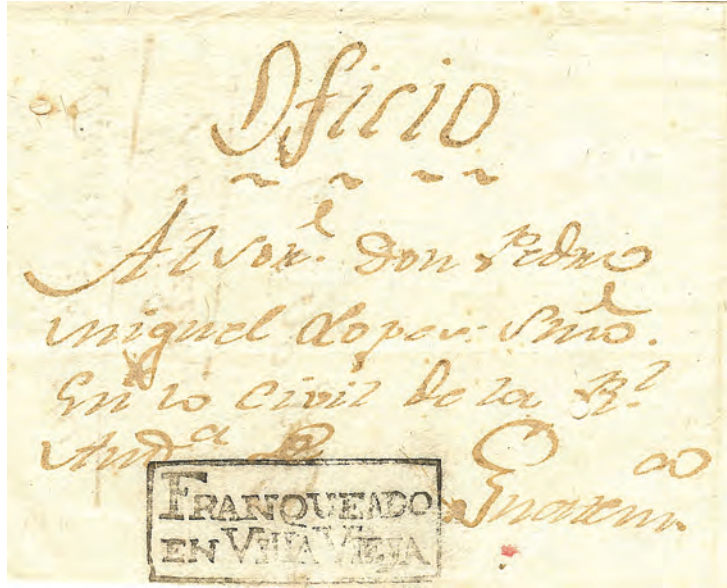 Oficio
Al Sor. don Pedro
miguel Lopez: Srio.
En lo Civil de la Rl.
Auda. De
Guatema.
FRANQUEADO
EN VILLA VIEJA